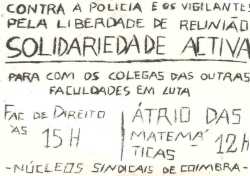 CONTRA A POLICIA E OS VIGILANTES
PELA LIBERDADE DE REUNIÃO
SOLIDARIEDADE ACTIVA
PARA COM OS COLEGAS DAS OUTRAS
FACULDADES EM LUTA
FAC DE DIREITO
ÀS 15H
ÁTRIO DAS
MATEMÁ
TICAS 12H
-NÚCLEOS SINDICAIS DE COIMBRA-